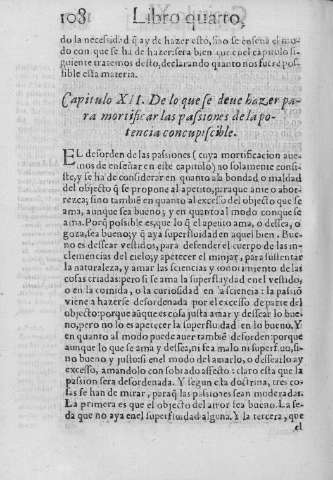 108 Libro quarto,
do la necesidad q̃ ay de hazer esto, sino se enseña el mo-
do con que se ha de hazer: sera bien que en el capitulo si-
guiente tratemos desto, declarando quanto nos fuere pos-
sible esta materia.
Capitulo XII. De lo que se deve hazer pa-
ra mortificar las passiones de la po-
tencia concupiscible.
EL desorden de las passiones (cuya mortificacion ave-
mos de enseñar en este capitulo) no solamente consi-
ste, y se ha de considerar en quanto a la bondad o maldad
del objecto q̃ se propone al apetito, para que ante o abor-
rezca; sino tambiẽ en quanto al excesso del objecto que se
ama, aunque sea bueno; y en quanto al modo con que se
ama. Porq̃ possible es, que lo q̃ el apetito ama, o dessea, o
goza, sea bueno; y q̃ aya superfluidad en aquel bien. Bue-
no es dessear vestidos, para defender el cuerpo de las in-
clemencias del cielo; y apetecer el manjar, para sustentar
la naturaleza, y amar las sciencias y conocimiento de las
cosas criadas: pero si se ama la superfluydad en el vestido,
o en la comida, o la curiosidad en la sciencia: la passiõ
viene a hazerse desordenada por el excesso de parte del
objecto: porque aũque es cosa justa amar y dessear lo bue-
no, pero no lo es apetecer la superfluidad en lo bueno. Y
en quanto al modo puede aver tambiẽ desorden: porque
aunque lo que se ama y dessea, ni sea malo ni superfluo, si-
no bueno y justo: si en el modo del amarlo, o dessearlo ay
excesso, amandolo con sobrado affecto: claro esta que la
passion sera desordenada. Y segun esta doctrina, tres co-
sas se han de mirar, paraq̃ las passiones sean moderadas.
La primera es que el objecto del amor sea bueno. La se-
da que no aya en el superfluidad alguna. Y la tercera, que
el